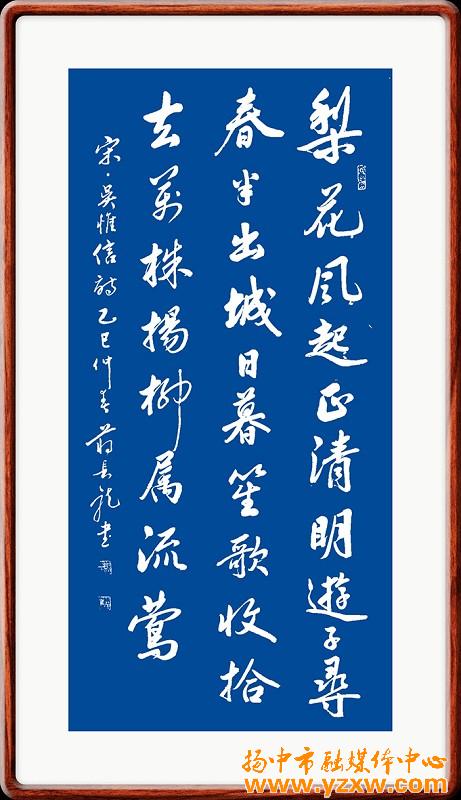 梨花风起正清明遊子尋
春半出城日暮笙歌收拾
去萬株楊柳属流莺
宋·吴惟信詩乙巳仲春蒋長龍书
扬中市融媒体中心
www.yzxw.com